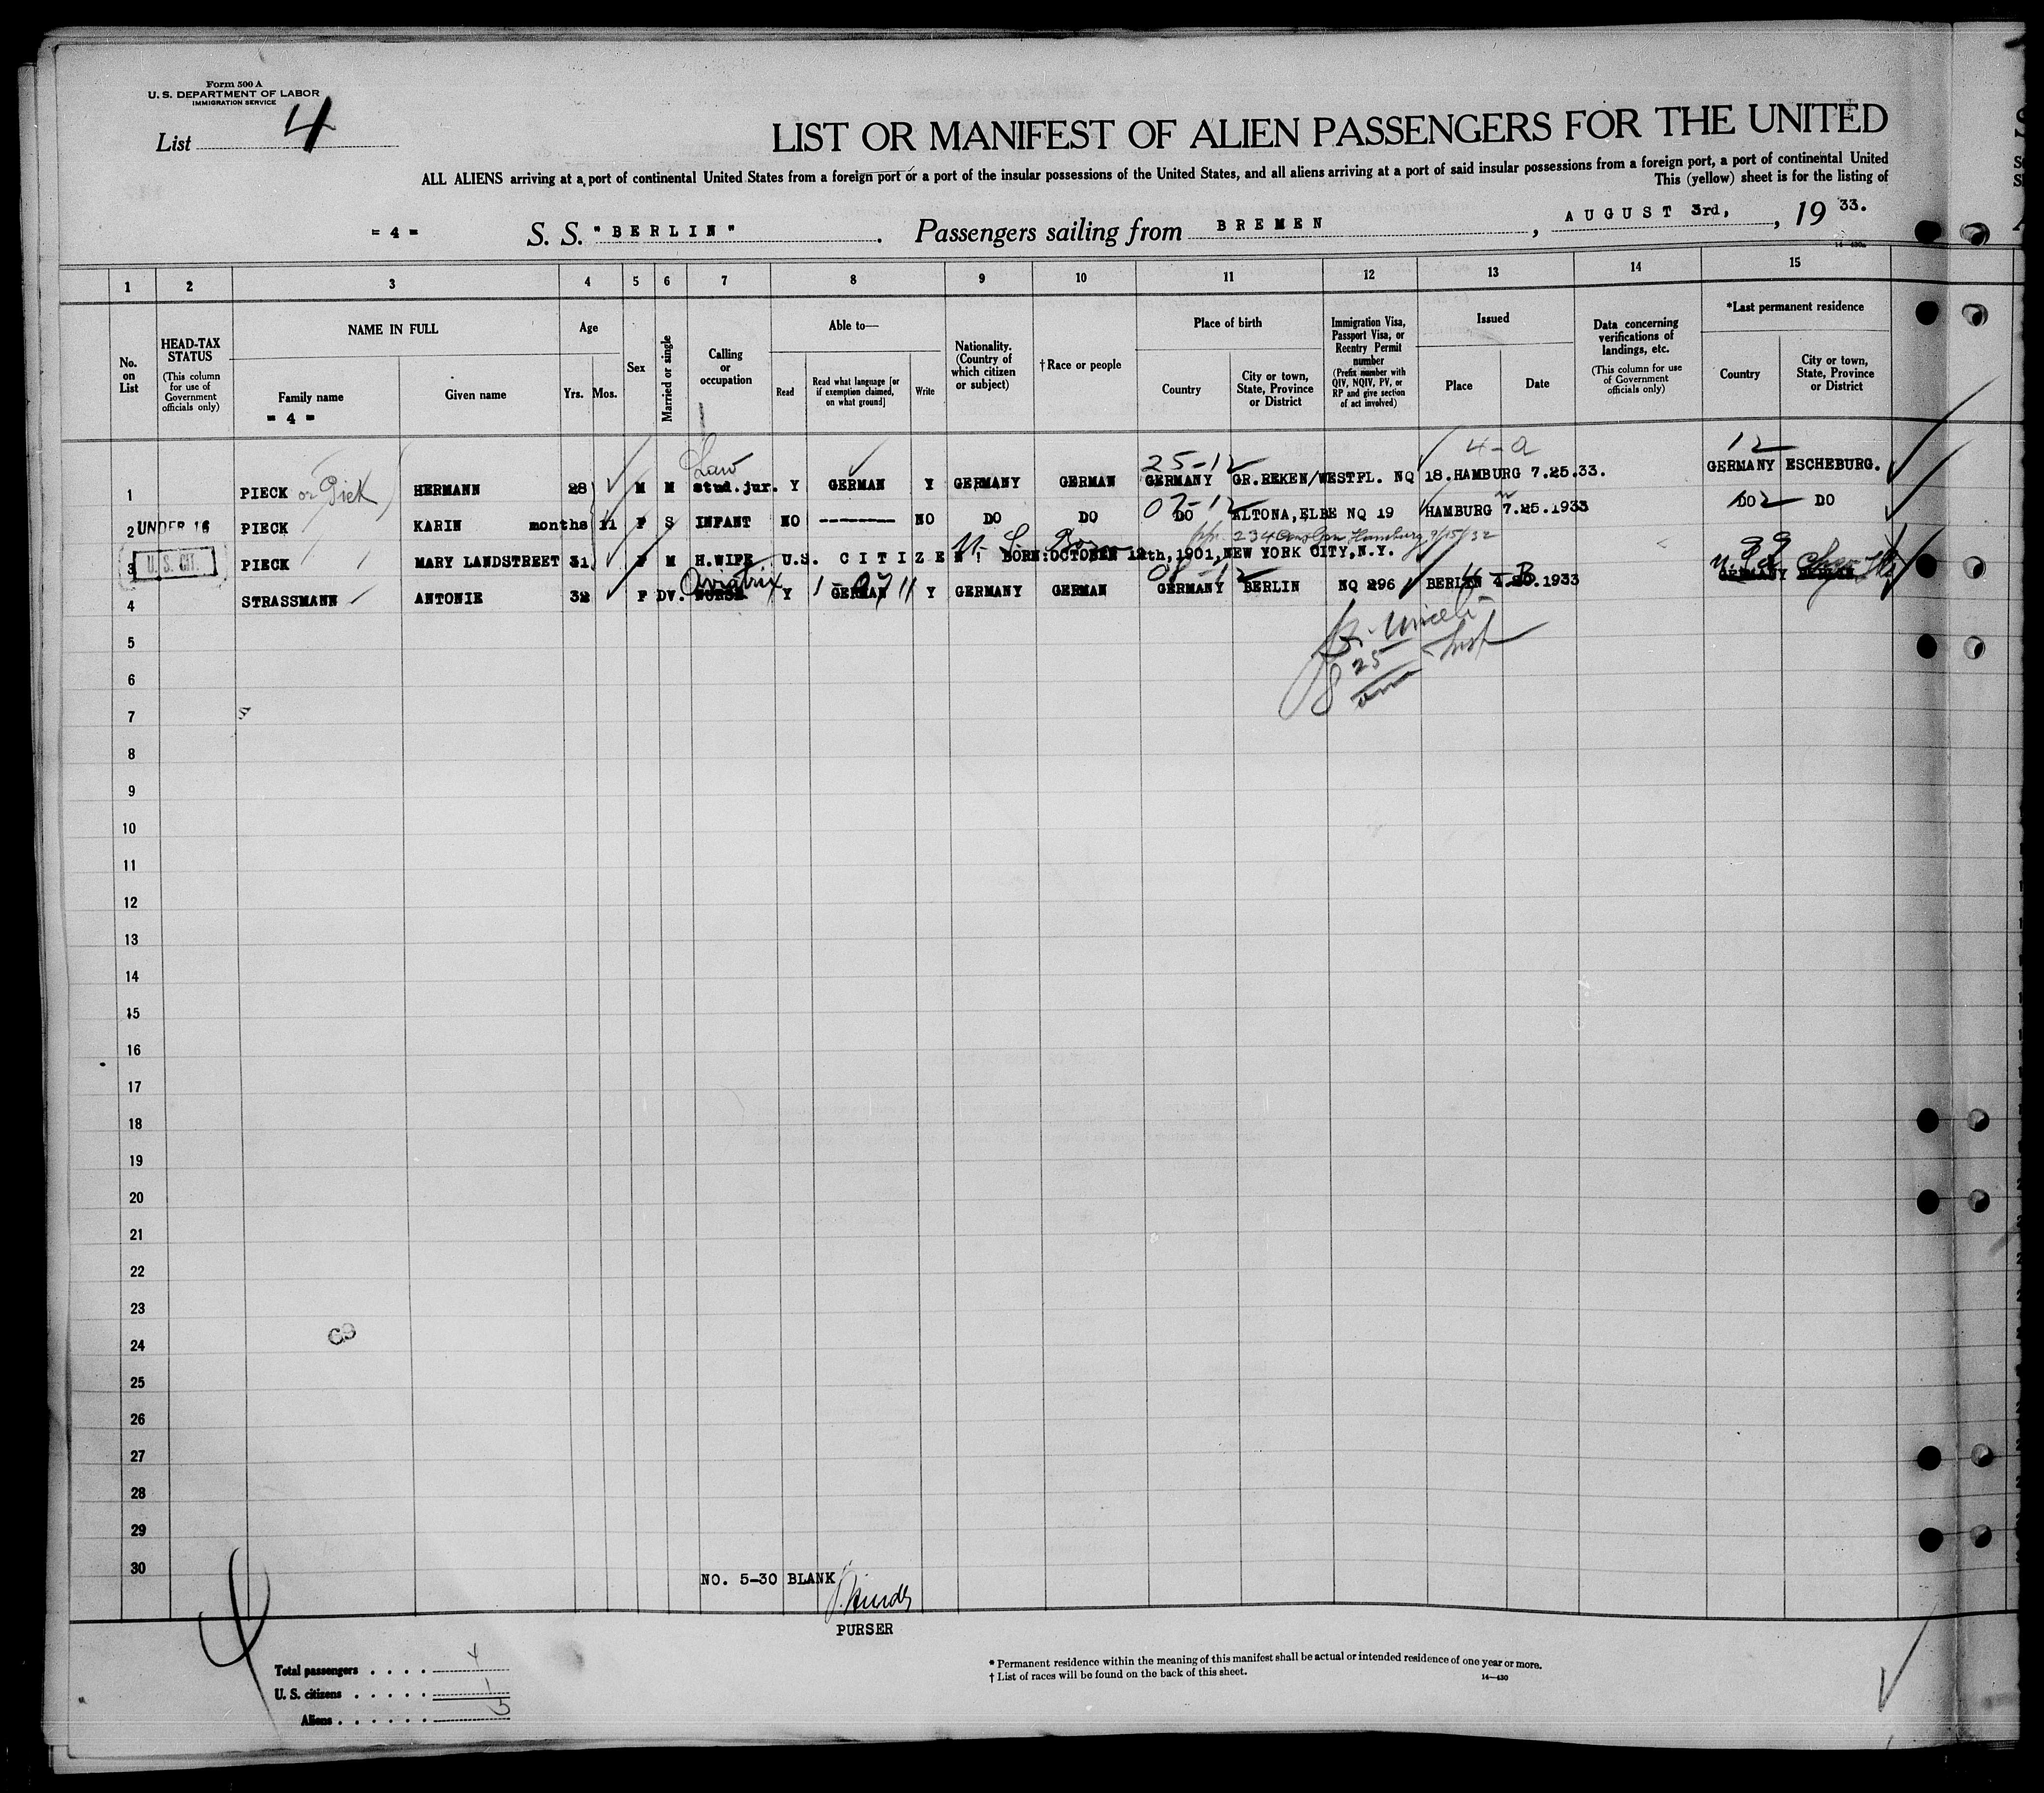 Form 500 A
U. S. DEPARTMENT OF LABOR
IMMIGRATION SERVICE
List 4
LIST OR MANIFEST OF ALIEN PASSENGERS FOR THE UNITED
ALL ALIENS arriving at a port of continental United States from a foreign port or a port of the insular possessions of the United States, and all aliens arriving at a port of said insular possessions from a foreign port, a port of continental United
This (yellow) sheet is for the listing of
= 4 = S. S. "BERLIN" . Passengers sailing from BREMEN , AUGUST 3rd, , 19 33.
1 2 3 4 5 6 7 8 9 10 11 12 13 14 15
No. on List
HEAD-TAX STATUS (This column for use of Government officials only)
NAME IN FULL
Family name
= 4 =
Given name
Age
Yrs. Mos.
Sex
Married or single
Calling or occupation
Able to—
Read
Read what language [or if exemption claimed, on what ground]
Write
Nationality. (Country of which citizen or subject)
† Race or people
Place of birth
Country
City or town, State, Province or District
Immigration Visa, Passport Visa, or Reentry Permit number (Prefix number with QIV, NQIV, PV, or RP and give section of act involved)
Issued
Place
Date
Data concerning verifications of landings, etc. (This column for use of Government officials only)
*Last permanent residence
Country
City or town, State, Province or District
Law 25-12 4-a 12
1 PIECK or Piek HERMANN 28 M M stud.jur. Y GERMAN Y GERMANY GERMAN GERMANY GR.REKEN/WESTFL. NQ 18.HAMBURG 7.25.33. GERMANY ESCHEBURG.
2 UNDER 16 PIECK KARIN months 11 F S INFANT NO -------- NO DO DO DO ALTONA,ELBE NQ 19 HAMBURG 7.25.1933 DO DO
3 U. S. CIT. PIECK MARY LANDSTREET 31 F M H.WIFE U.S. CITIZEN! BORN:OCTOBER 12th,1901,NEW YORK CITY,N.Y.
Aviatrix
4 STRASSMANN ANTONIE 32 F DV. NURSE Y GERMAN Y GERMANY GERMAN GERMANY BERLIN NQ 296 BERLIN 4.20.1933 GERMANY
5
6
7
8
9
10
11
12
13
14
15
16
17
18
19
20
21
22
23
24
25
26
27
28
29
30
NO. 5-30 BLANK
PURSER
Total passengers . . . . 4
U. S. citizens . . . . . 1
Aliens . . . . . . 3
* Permanent residence within the meaning of this manifest shall be actual or intended residence of one year or more.
† List of races will be found on the back of this sheet.
14—430